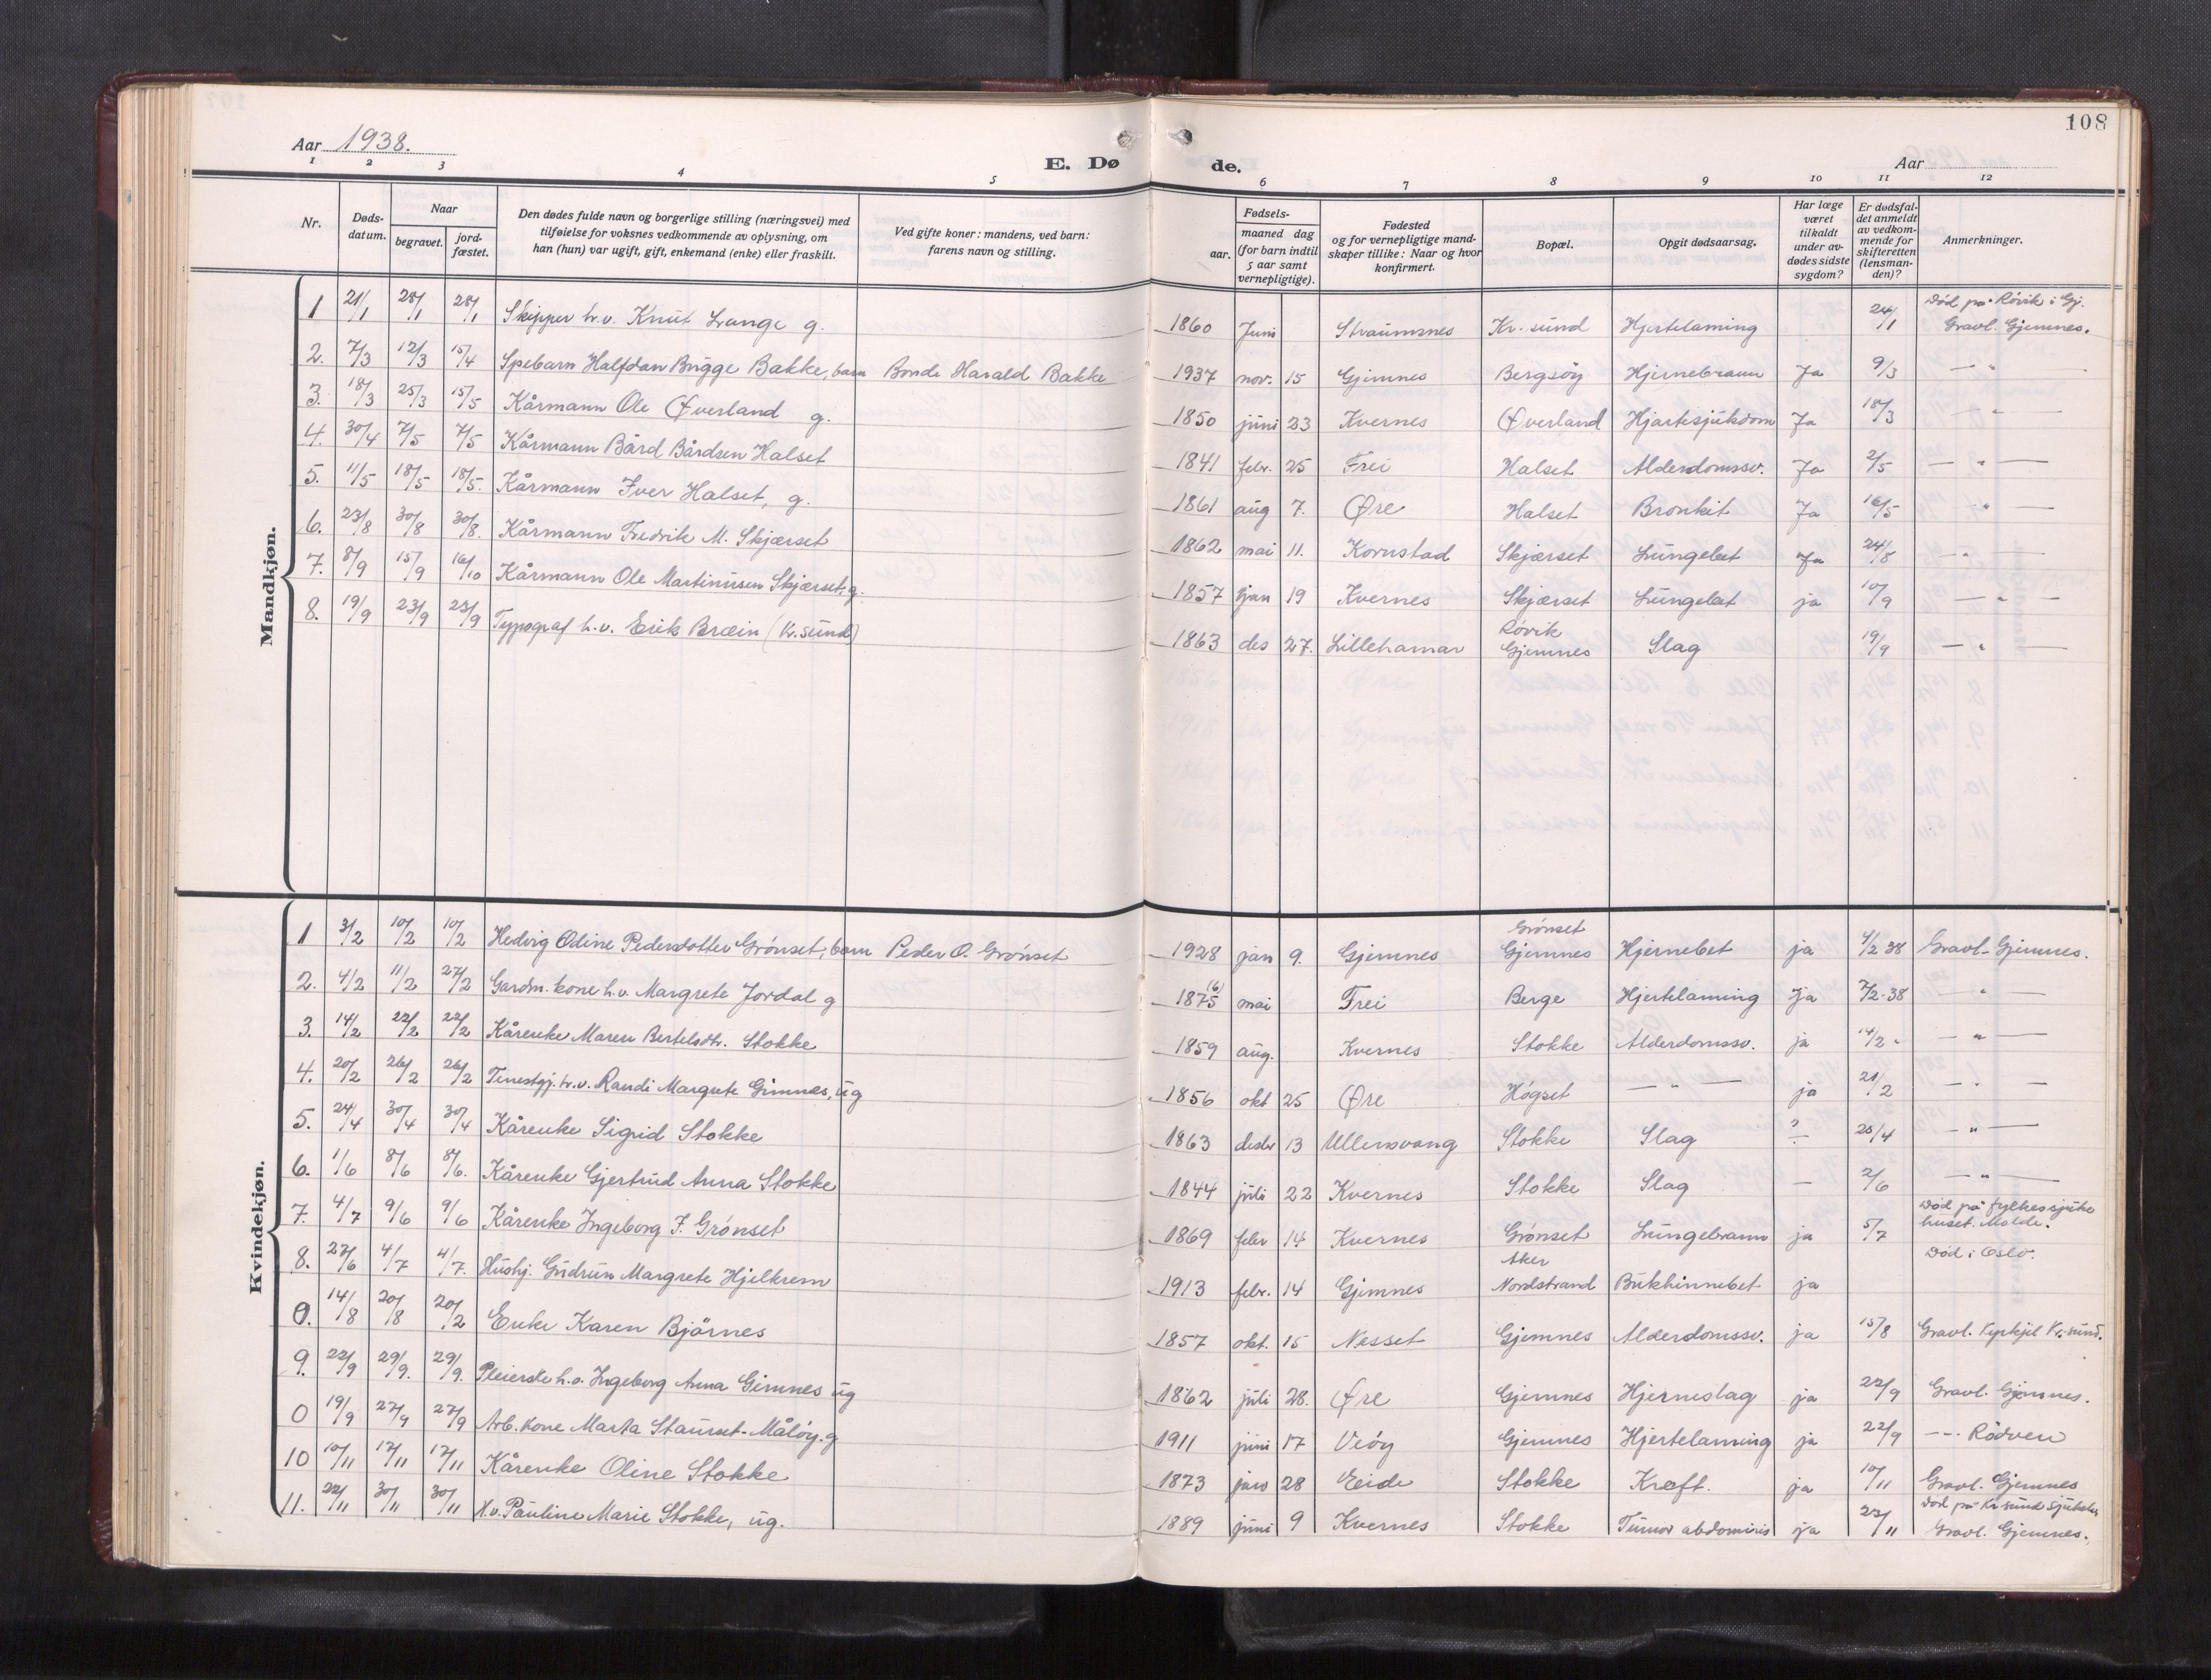 108
Aar 1938.
E. Døde.
Aar
1 2 3 4 5 6 7 8 9 10 11 12
Nr. | Døds-datum. | Naar begravet. | jord-fæstet. | Den dødes fulde navn og borgerlige stilling (næringsvei) med tilføielse for voksnes vedkommende av oplysning, om han (hun) var ugift, gift, enkemand (enke) eller fraskilt. | Ved gifte koner: mandens, ved barn: farens navn og stilling. | Fødsels- aar. maaned dag (for barn indtil 5 aar samt vernepligtige). | Fødested og for vernepligtige mandskaper tillike: Naar og hvor konfirmert. | Bopæl. | Opgit dødsaarsag. | Har læge været tilkaldt under avdødes sidste sygdom? | Er dødsfaldet anmeldt av vedkommende for skifteretten (lensmanden)? | Anmerkninger.
Mandkjøn.
1 21/1 28/1 28/1 Skipper h.v. Knut Lange g. 1860 Juni Straumsnes Kr. sund Hjertelaming 24/1 Død på Røvik i Gj. Gravl. Gjemnes.
2. 7/3 12/3 15/4 Spebarn Halfdan Bugge Bakke, barn Bonde Harald Bakke 1937 nov. 15 Gjemnes Bergsøy Hjernebraun Ja 9/3 — " —
3. 18/3 25/3 15/5 Kårmann Ole Øverland g. 1850 juni 23 Kvernes Øverland Hjartesjukdom Ja 18/3 — " —
4. 30/4 7/5 7/5 Kårmann Bård Bårdsen Halset 1841 febr. 25 Frei Halset Alderdomssv. Ja 2/5 — " —
5. 11/5 18/5 18/5. Kårmann Iver Halset, g. 1861 aug 7. Øre Halset Bronkit Ja 16/5 " —
6. 23/8 30/8 30/8. Kårmann Fredrik M. Skjærset 1862 mai 11. Kornstad Skjærset Lungebet Ja 24/8 — " —
7. 8/9 15/9 16/10 Kårmann Ole Martinusen Skjærset, g. 1857 jan 19 Kvernes Skjærset Lungebet ja 10/9 — " —
8. 19/9 23/9 23/9 Typograf h.v. Erik Bræin (Kr.sund) 1863 des 27. Lillehamar Røvik Gjemnes Slag 19/9 — " —
Kvindekjøn.
1 3/2 10/2 10/2 Hedvig Odine Pedersdotter Grønset, barn Peder O. Grønset 1928 jan 9. Gjemnes Grønset Gjemnes Hjernebet ja 4/2 38 Gravl. Gjemnes.
2. 4/2 11/2 27/2 Gardm. kone h.v. Margrete Jordal g 1875 (6) mai Frei Berge Hjertelaming ja 7/2-38 — " —
3. 14/2 22/2 22/2 Kårenke Maren Bertelsdtr. Stokke 1859 aug. Kvernes Stokke Alderdomssv. ja 14/2 " — " —
4. 20/2 26/2 26/2 Tenestgj. h.v. Randi Margrete Gimnes, ug 1856 okt 25 Øre Høgset — " — ja 21/2 — " —
5. 24/4 30/4 30/4 Kårenke Sigrid Stokke 1863 desbr 13 Ullensvang Stokke Slag ? 25/4 — " —
6. 1/6 8/6 8/6. Kårenke Gjertrud Anna Stokke 1844 juli 22 Kvernes Stokke Slag — 2/6 — " —
7. 4/7 9/6 9/6 Kårenke Ingeborg J. Grønset 1869 febr 14 Kvernes Grønset Lungebrann ja 5/7 Død på fylkessjukehuset. Molde.
8. 27/6 4/7 4/7. Hushj. Gudrun Margrete Hjelkrem 1913 febr. 14 Gjemnes Aker Nordstrand Bukhinnebet ja Død i Oslo.
0. 14/8 20/8 20/2 Enke Karen Bjårnes 1857 okt. 15 Nesset Gjemnes Alderdomssv. ja 15/8 Gravl. Kyrkjel Kr.sund.
9. 22/9 29/9. 29/9. Pleierske h.v. Ingeborg Anna Gimnes ug 1862 juli 28. Øre Gjemnes Hjerneslag ja 22/9 Gravl. Gjemnes.
0 19/9 27/9 27/9 Arb. kone Marta Staurset-Måløy. g 1911 juni 17 Veøy Gjemnes Hjertelaming ja 22/9 —"— Rødven
10 10/11 17/11 17/11 Kårenke Oline Stokke 1873 jan 28 Eide Stokke Kreft. ja 10/11 Gravl. Gjemnes
11. 22/11 30/11 30/11 H.v. Pauline Marie Stokke, ug. 1889 juni 9 Kvernes Stokke Tumor abdominis ja 23/11 Død på Kr.sund Sjukehus Gravl. Gjemnes.